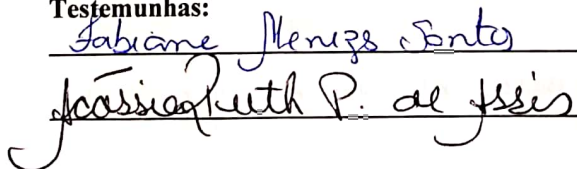 Testemunhas:
Fabiane Menezs Santos
Acássia Ruth P. de Assis